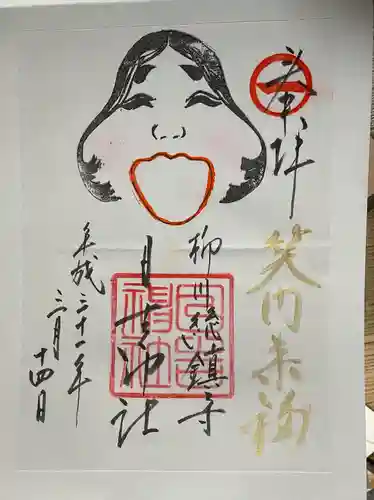 奉拝
笑門来福
柳川総鎮守
日吉神社
平成三十一年
三月十四日
日吉神社